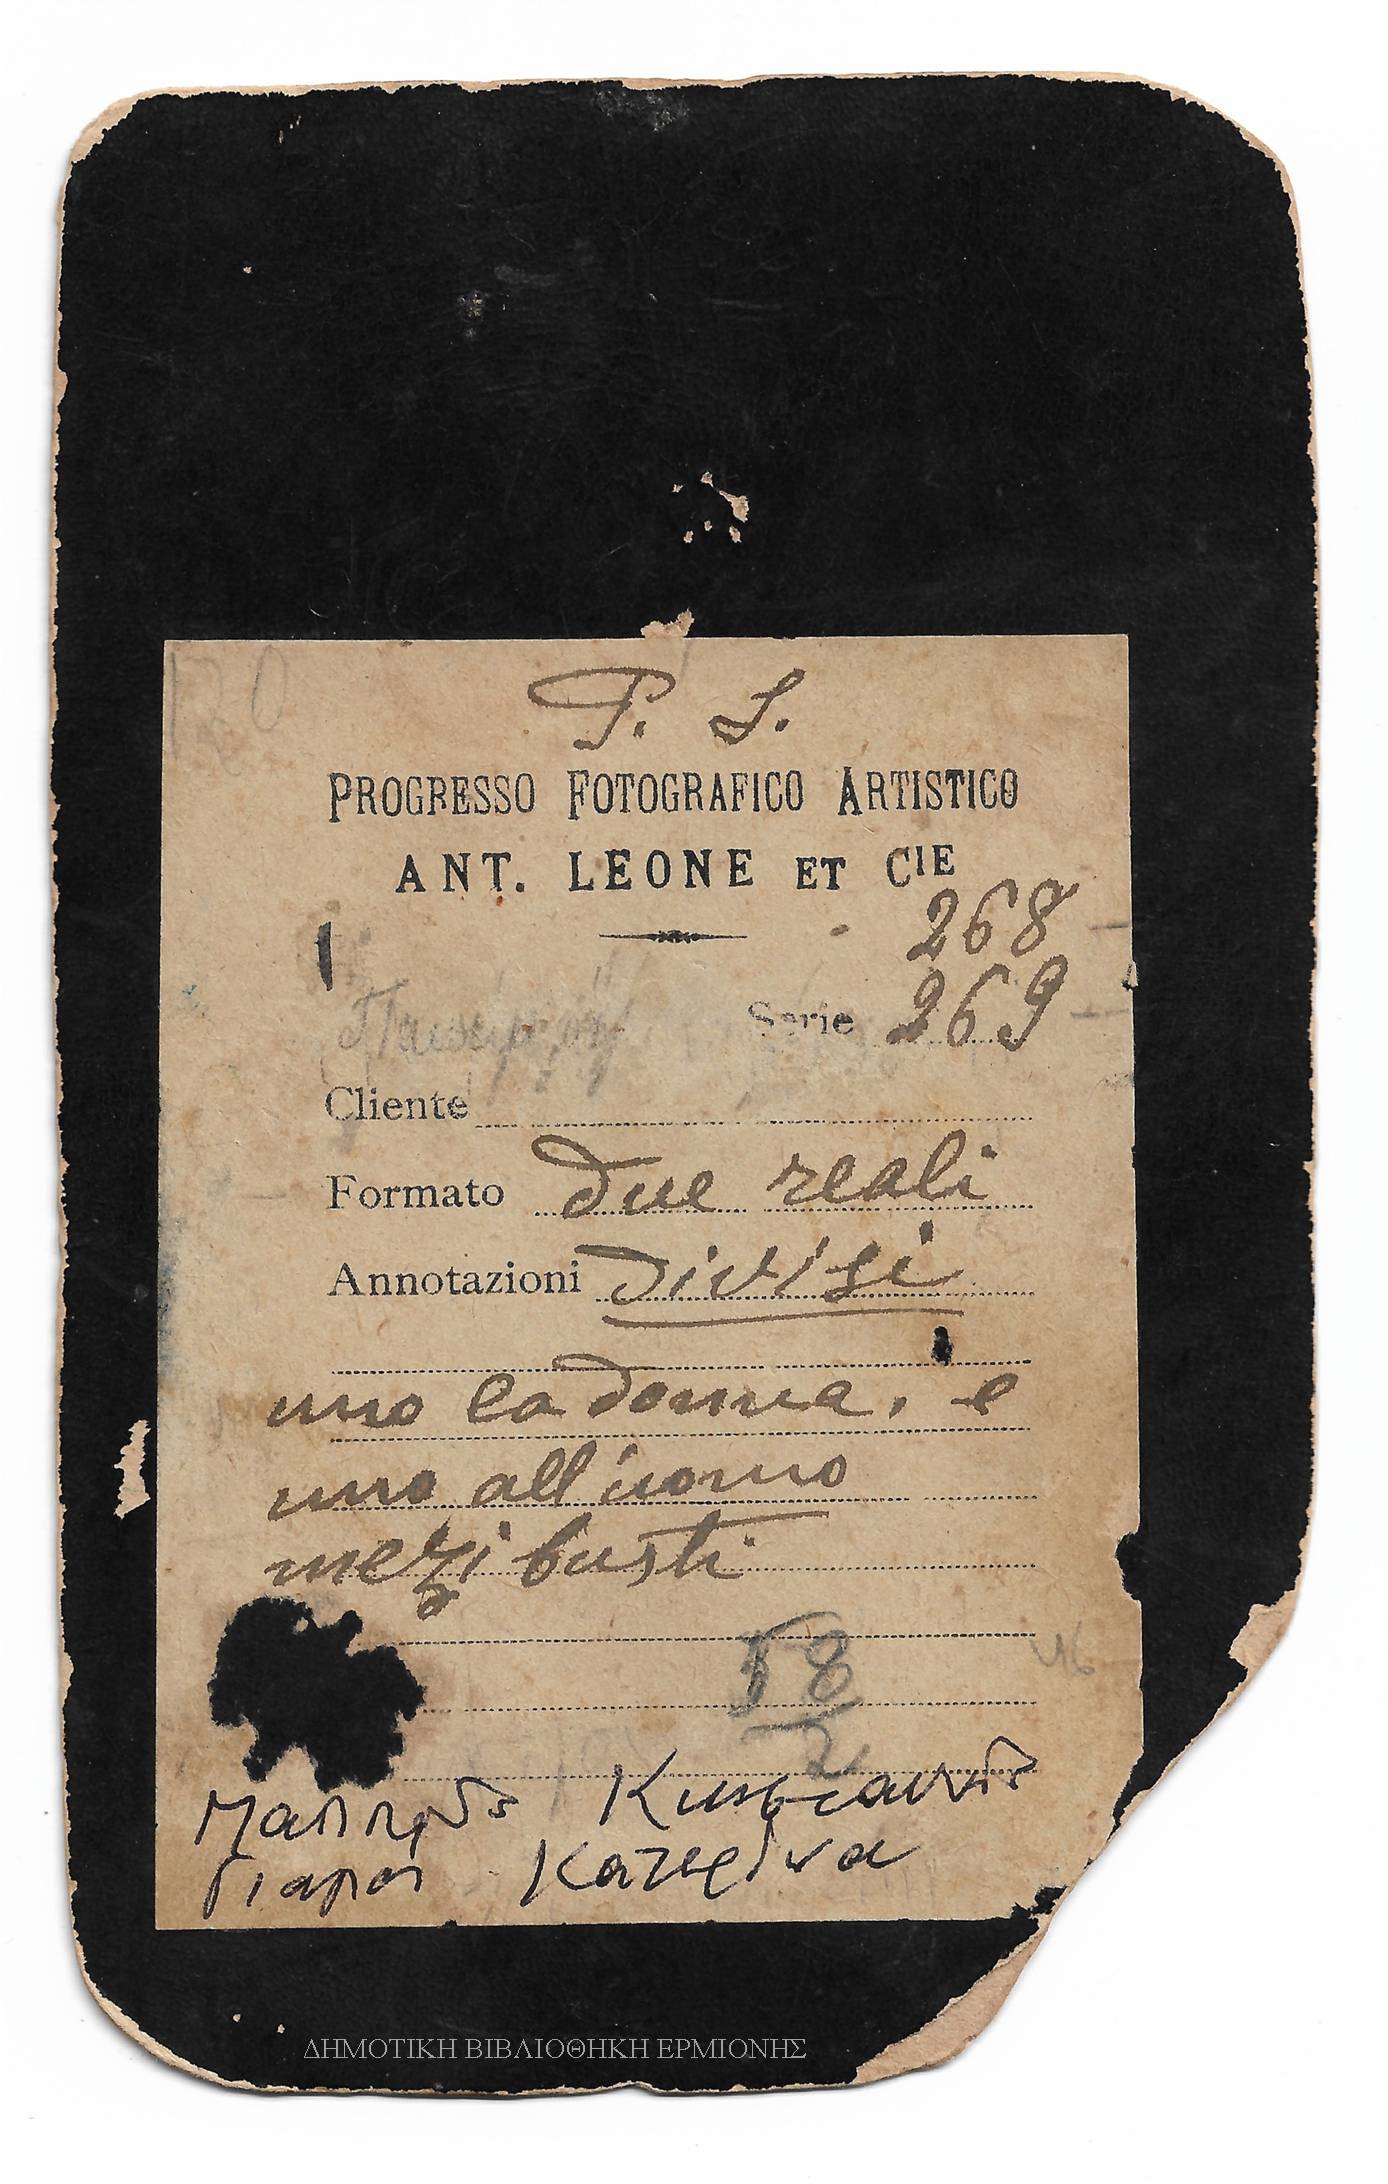 120
P. S.
PROGRESSO FOTOGRAFICO ARTISTICO
ANT. LEONE ET CIE
268
Serie 269
Cliente
Formato due reali
Annotazioni divisi
uno la donna, e
uno all'uomo
mezi busti
46
58
2
Κατερίνα
ΔΗΜΟΤΙΚΗ ΒΙΒΛΙΟΘΗΚΗ ΕΡΜΙΟΝΗΣ